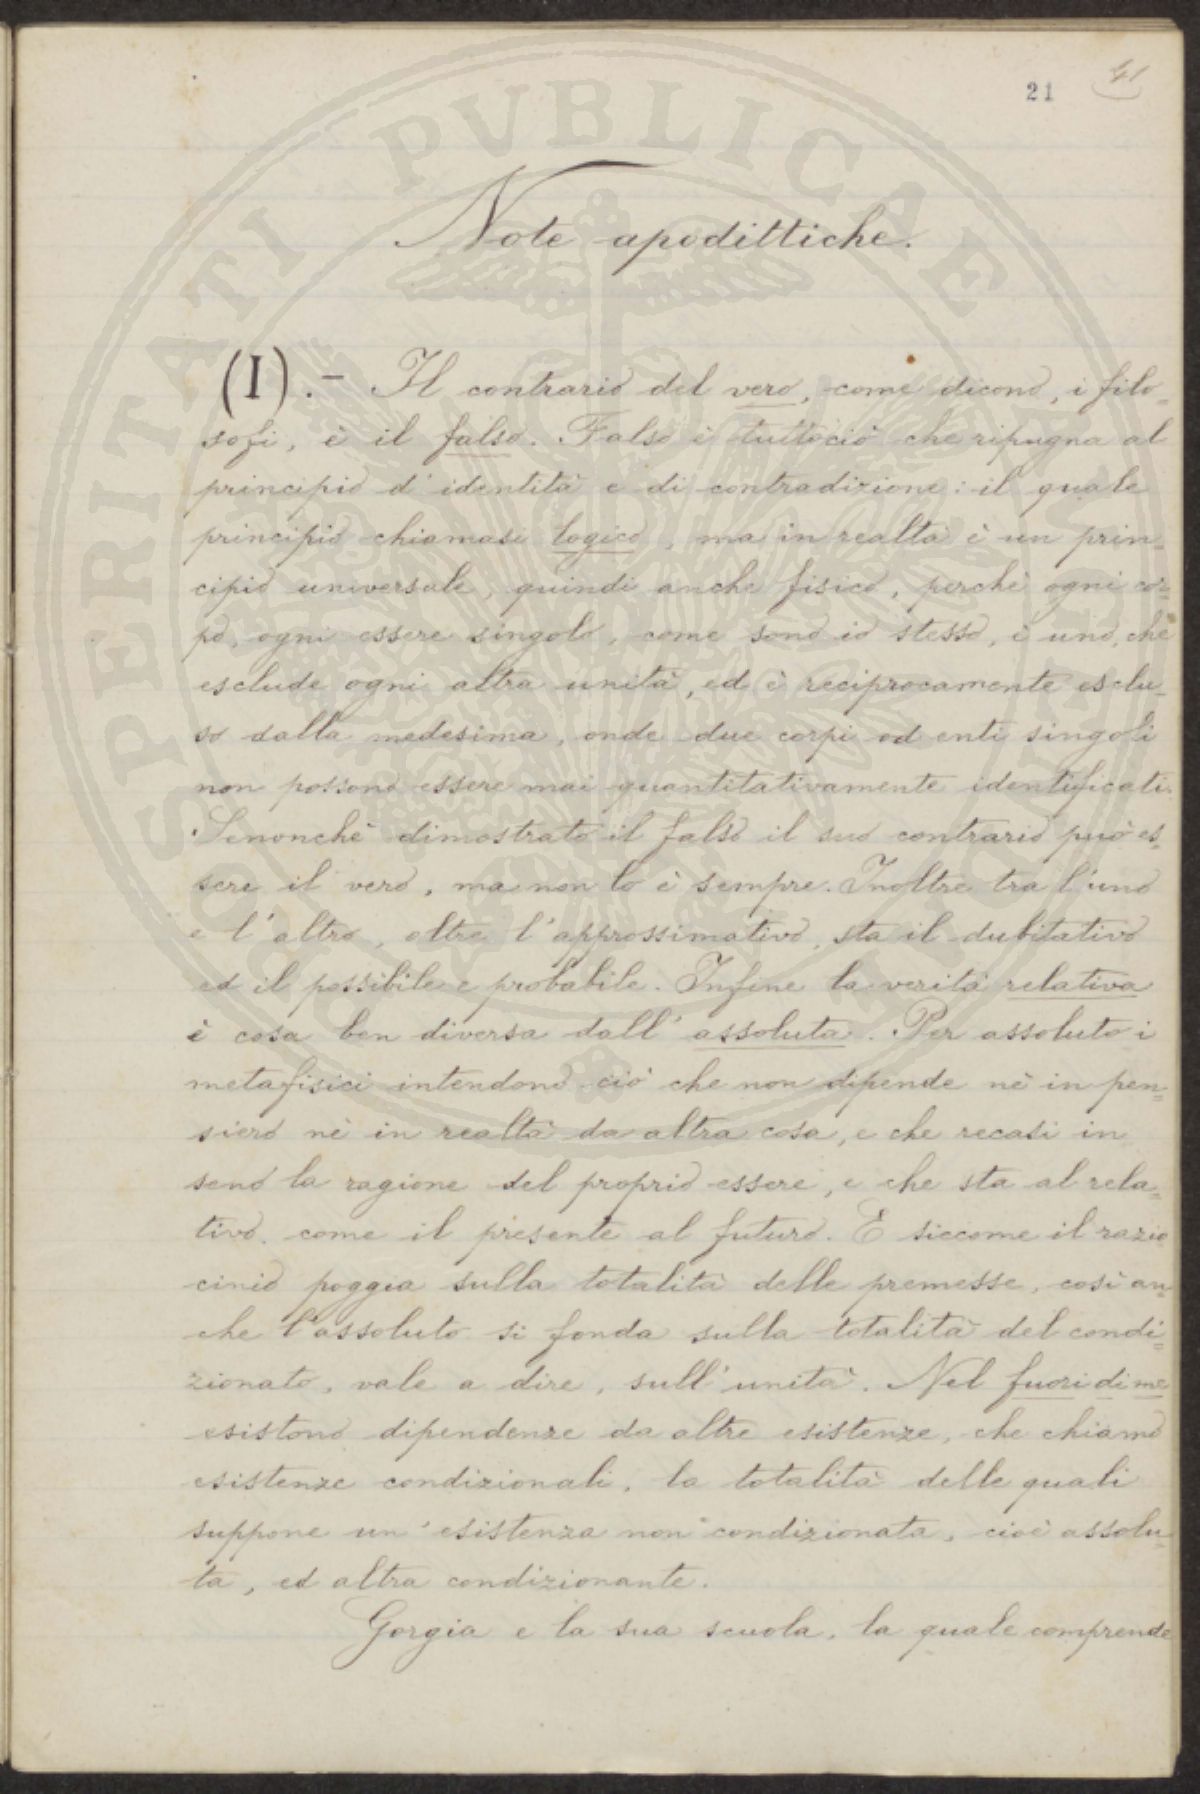 21
41
Note apodittiche.
(I).- Il contrario del vero, come dicono, i filo=
sofi, è il falso. Falso è tuttociò che ripugna al
principio d'identità e di contradizione: il quale
principio chiamasi logico, ma in realtà è un prin=
cipio universale, quindi anche fisico, perchè ogni cor=
po, ogni essere singolo, come sono io stesso, è uno, che
esclude ogni altra unità, ed è reciprocamente esclu=
so dalla medesima, onde due corpi od enti singoli
non possono essere mai quantitativamente identificati.
Senonchè dimostrato il falso il suo contrario può es=
sere il vero, ma non lo è sempre. Inoltre tra l'uno
e l'altro, oltre l'approssimativo, sta il dubitativo
ed il possibile e probabile. Infine la verità relativa
è cosa ben diversa dall'assoluta. Per assoluto i
metafisici intendono ciò che non dipende nè in pen=
siero nè in realtà da altra cosa, e che recasi in
seno la ragione del proprio essere, e che sta al rela=
tivo, come il presente al futuro. E siccome il razio
cinio poggia sulla totalità delle premesse, così an=
che l'assoluto si fonda sulla totalità del condi=
zionato, vale a dire, sull'unità. Nel fuori di me
esistono dipendenze da altre esistenze, che chiamo
esistenze condizionali, la totalità delle quali
suppone un'esistenza non condizionata, cioè assolu=
ta, ed altra condizionante.
Gorgia e la sua scuola, la quale comprende
PROSPERITATI PUBLICAE